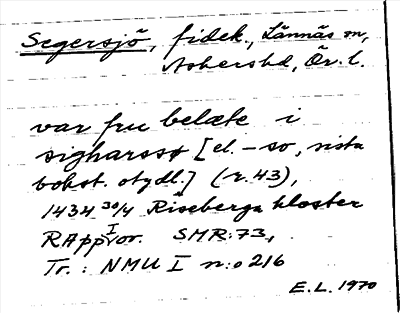 Segersjö, fidek., Lännäs sn,
Askers hd, Ör. l.
var fru belæte i
sigharssø [el. -so, sista
bokst. otydl.] (r. 43),
1434 30/4 Riseberga kloster
RApp I or. SMR: 73,
Tr.: NMU I n:o 216
E. L. 1970